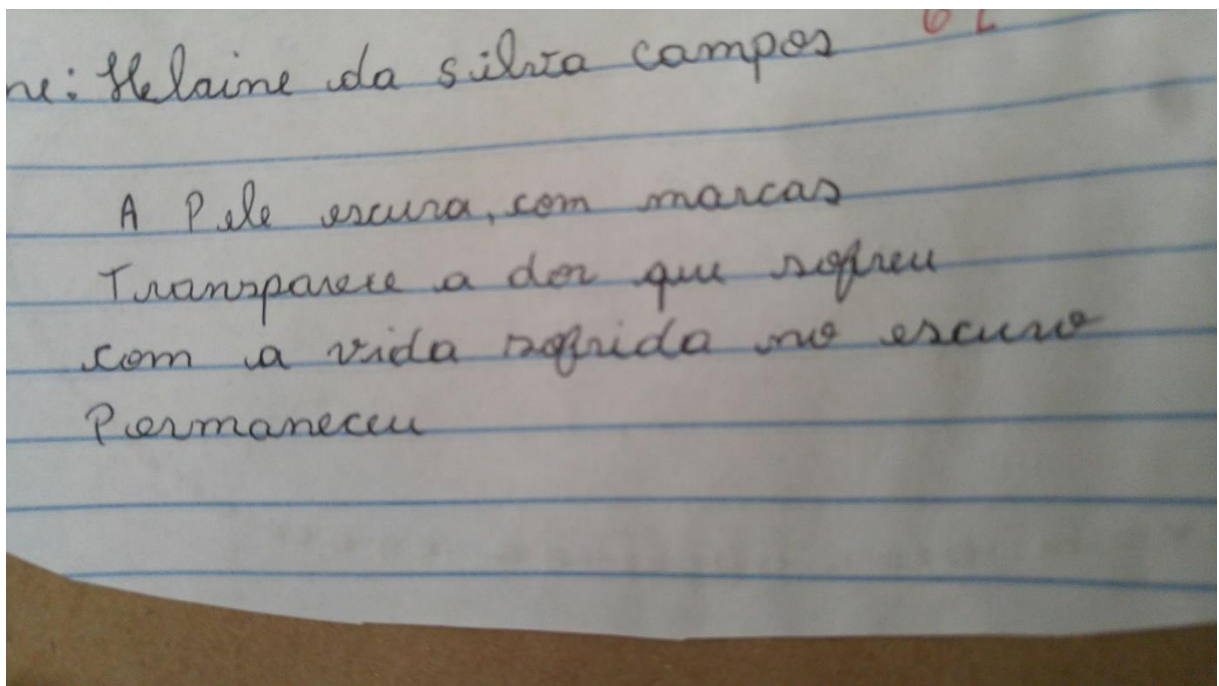 me: Helaine da silva campos
A Pele escura, com marcas
Transparece a dor que sofreu
com a vida sofrida no escuro
Permaneceu